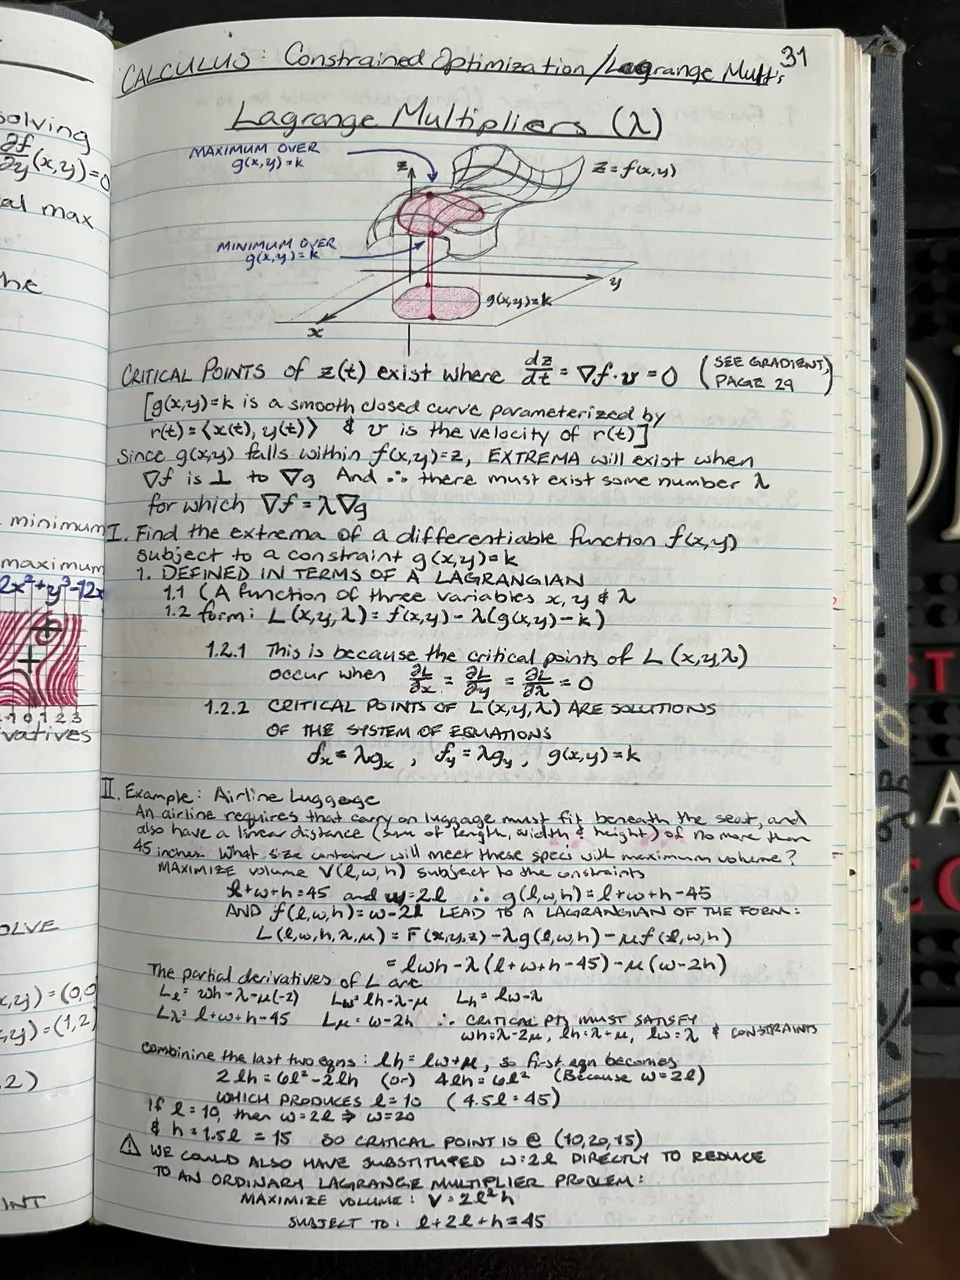 solving
∂f/∂y(x,y)=0
al max
he
minimum
maximum
2x²+y³-12x
-1 0 1 2 3
vatives
OLVE
x,y)=(0,0
,y)=(1,2)
,2)
INT
31
CALCULUS: Constrained Optimization/Lagrange Mult's
Lagrange Multipliers (λ)
MAXIMUM OVER
g(x,y)=k
z
z=f(x,y)
MINIMUM OVER
g(x,y)=k
y
g(x,y)=k
x
CRITICAL POINTS of z(t) exist where dz/dt = ∇f·v = 0 (SEE GRADIENT, PAGE 29)
[g(x,y)=k is a smooth closed curve parameterized by
r(t)=⟨x(t), y(t)⟩ & v is the velocity of r(t)]
Since g(x,y) falls within f(x,y)=z, EXTREMA will exist when
∇f is ⊥ to ∇g And ∴ there must exist some number λ
for which ∇f = λ∇g
I. Find the extrema of a differentiable function f(x,y)
subject to a constraint g(x,y)=k
1. DEFINED IN TERMS OF A LAGRANGIAN
1.1 (A function of three variables x, y & λ
1.2 form: L(x,y,λ)=f(x,y)-λ(g(x,y)-k)
1.2.1 This is because the critical points of L(x,y,λ)
occur when ∂L/∂x = ∂L/∂y = ∂L/∂λ = 0
1.2.2 CRITICAL POINTS OF L(x,y,λ) ARE SOLUTIONS
OF THE SYSTEM OF EQUATIONS
fx=λgx, fy=λgy, g(x,y)=k
II. Example: Airline Luggage
An airline requires that carry on luggage must fit beneath the seat, and
also have a linear distance (sum of length, width & height) of no more than
45 inches. What size container will meet these specs with maximum volume?
MAXIMIZE VOLUME V(l,w,h) subject to the constraints
l+w+h=45 and w=2l ∴ g(l,w,h)=l+w+h-45
AND f(l,w,h)=w-2l LEAD TO A LAGRANGIAN OF THE FORM:
L(l,w,h,λ,μ)=F(x,y,z)-λg(l,w,h)-μf(l,w,h)
= lwh-λ(l+w+h-45)-μ(w-2h)
The partial derivatives of L are
Ll=wh-λ-μ(-2) Lw=lh-λ-μ Lh=lw-λ
Lλ=l+w+h-45 Lμ=w-2h ∴ CRITICAL PTS MUST SATISFY
wh=λ-2μ, lh=λ+μ, lw=λ & CONSTRAINTS
Combinine the last two eqns: lh=lw+μ, so first eqn becomes
2lh=6l²-2lh (or) 4lh=6l² (Because w=2l)
WHICH PRODUCES l=10 (4.5l=45)
If l=10, then w=2l ⇒ w=20
& h=1.5l=15 SO CRITICAL POINT IS @ (10,20,15)
⚠ WE COULD ALSO HAVE SUBSTITUTED w=2l DIRECTLY TO REDUCE
TO AN ORDINARY LAGRANGE MULTIPLIER PROBLEM:
MAXIMIZE VOLUME: V=2l²h
SUBJECT TO: l+2l+h=45